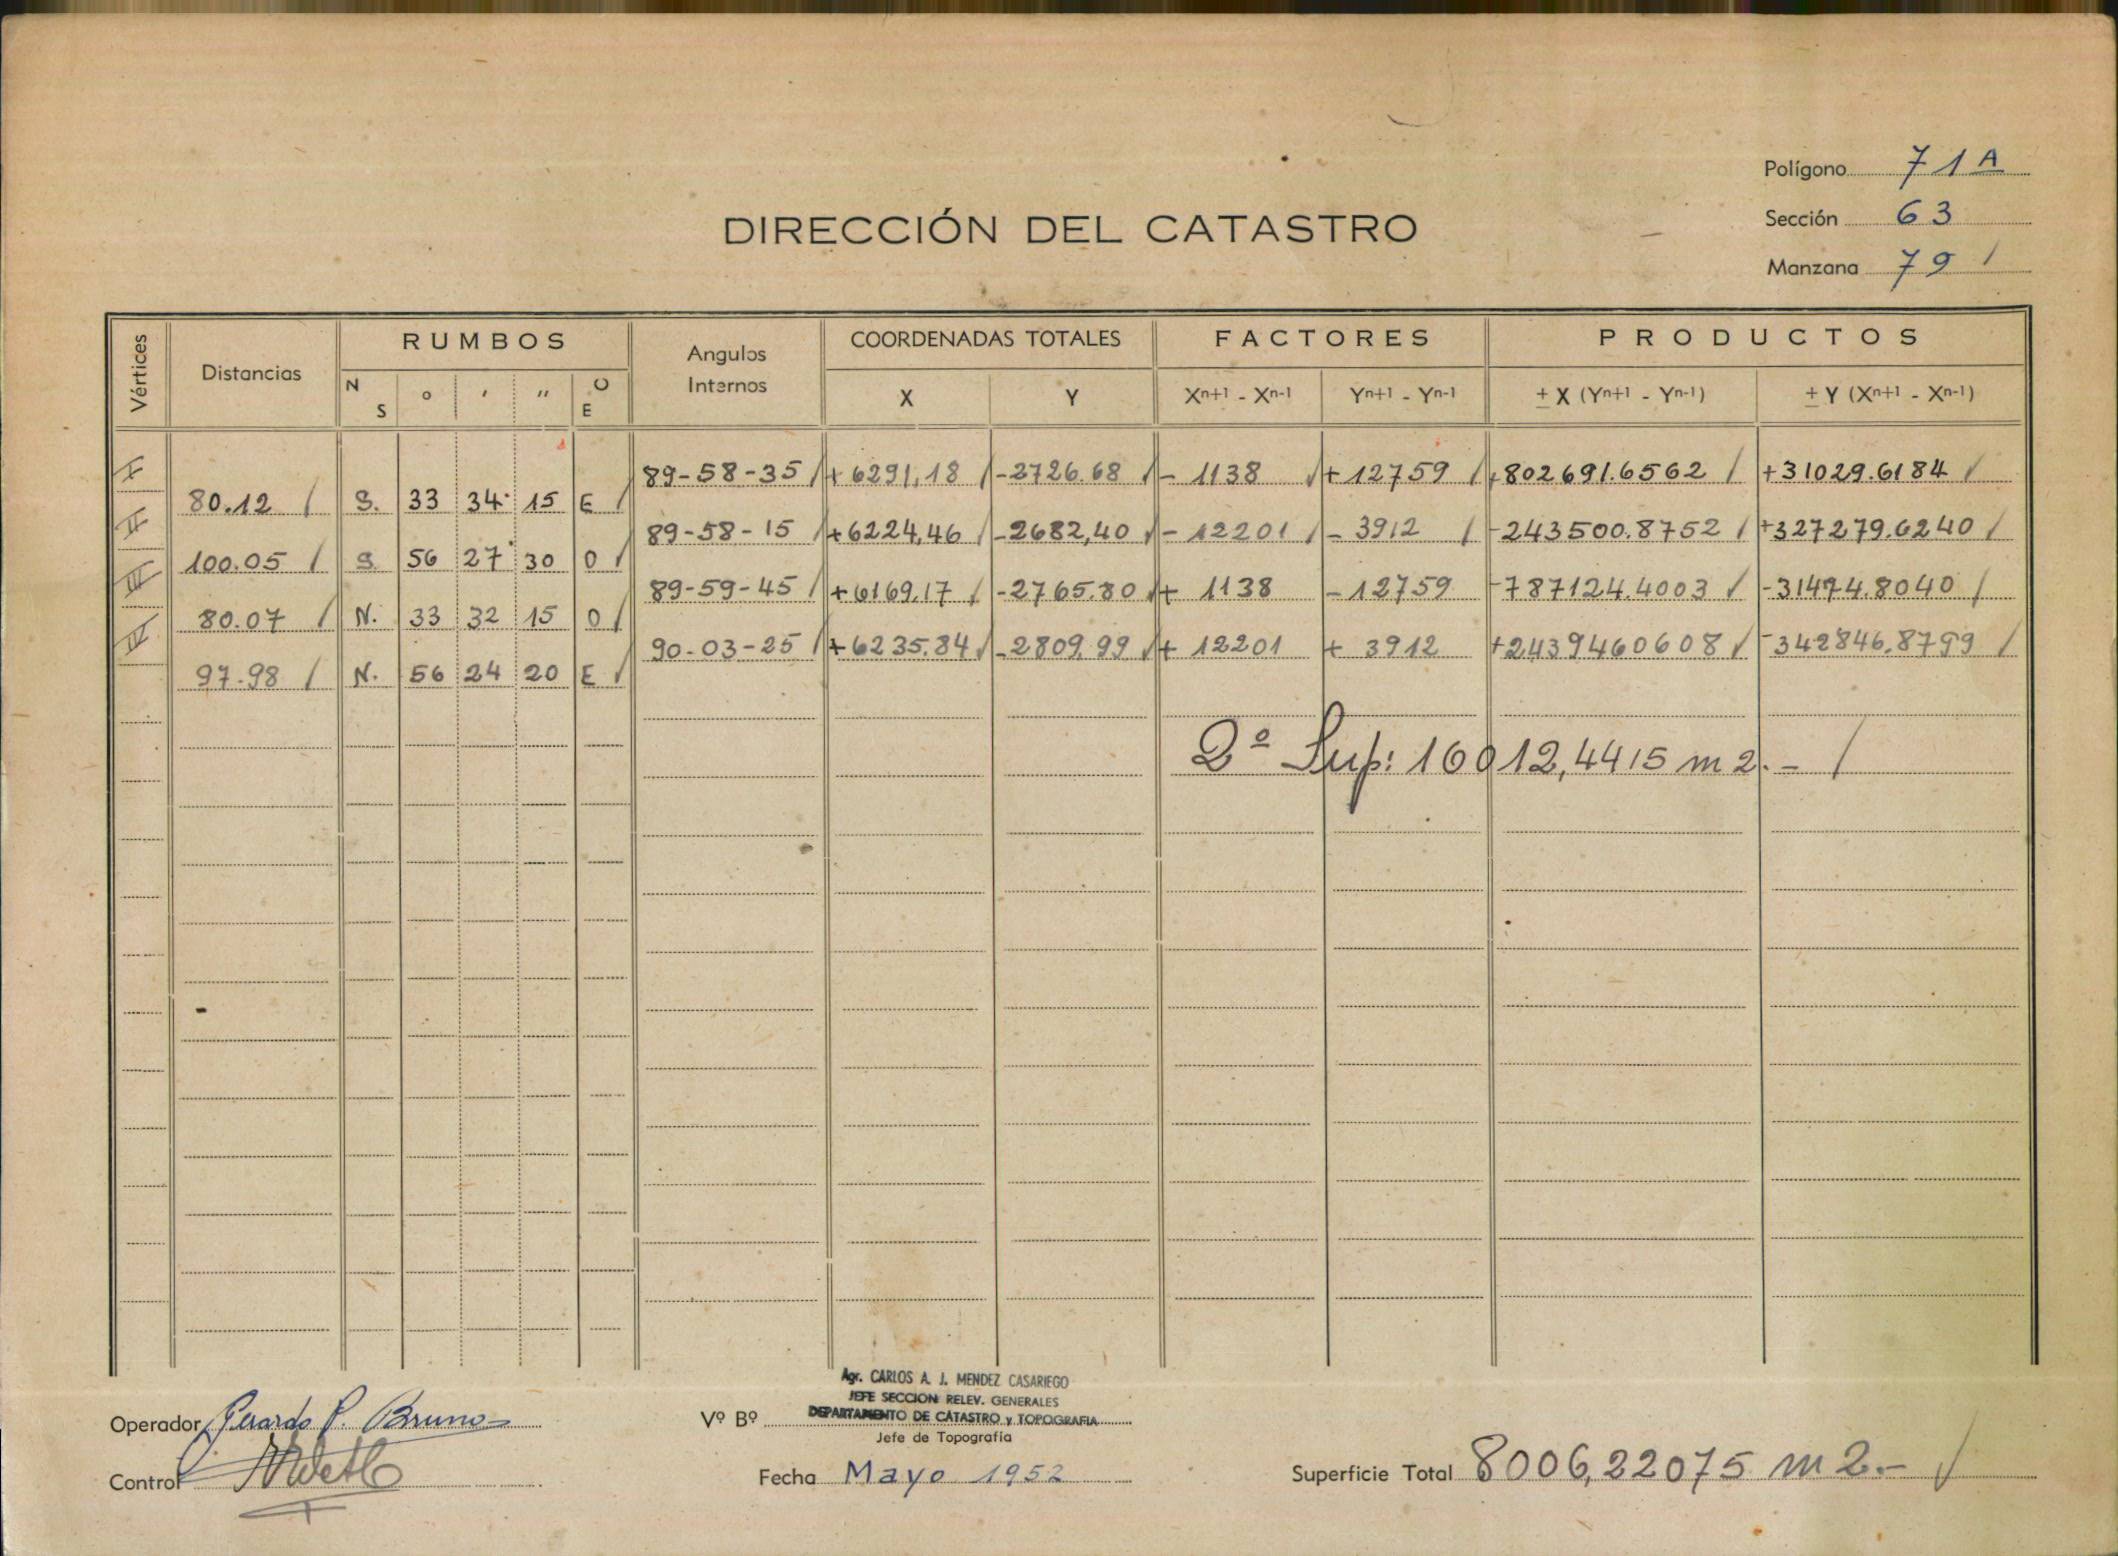 Polígono 71A
DIRECCIÓN DEL CATASTRO
Sección 63
Manzana 79 /
Vértices Distancias RUMBOS Angulos Internos COORDENADAS TOTALES FACTORES PRODUCTOS
N S ° ' " O E X Y Xn+1 - Xn-1 Yn+1 - Yn-1 ± X (Yn+1 - Yn-1) ± Y (Xn+1 - Xn-1)
I 89-58-35 / +6291,18 / -2726.68 / - 1138 / +12759 / +802691.6562 / +31029.6184 /
80.12 / S. 33 34 15 E /
II 89-58-15 +6224,46 / -2682,40 / - 12201 / - 3912 / -243500.8752 / +327279.6240 /
100.05 / S 56 27 30 O /
III 89-59-45 / +6169,17 / -2765.80 + 1138 -12759 -787124.4003 / -31474.8040 /
80.07 / N. 33 32 15 O /
IV 90-03-25 / +6235.84 / -2809.99 / + 12201 + 3912 +2439460608 / -342846.8799 /
97.98 / N. 56 24 20 E /
2º Sup: 16012,4415 m2.- /
Agr. CARLOS A. J. MENDEZ CASARIEGO
JEFE SECCION RELEV. GENERALES
Operador Gerardo P. Bruno
Vº Bº DEPARTAMENTO DE CATASTRO y TOPOGRAFIA
Jefe de Topografía
Control
Fecha Mayo 1952
Superficie Total 8006,22075 m2.- /